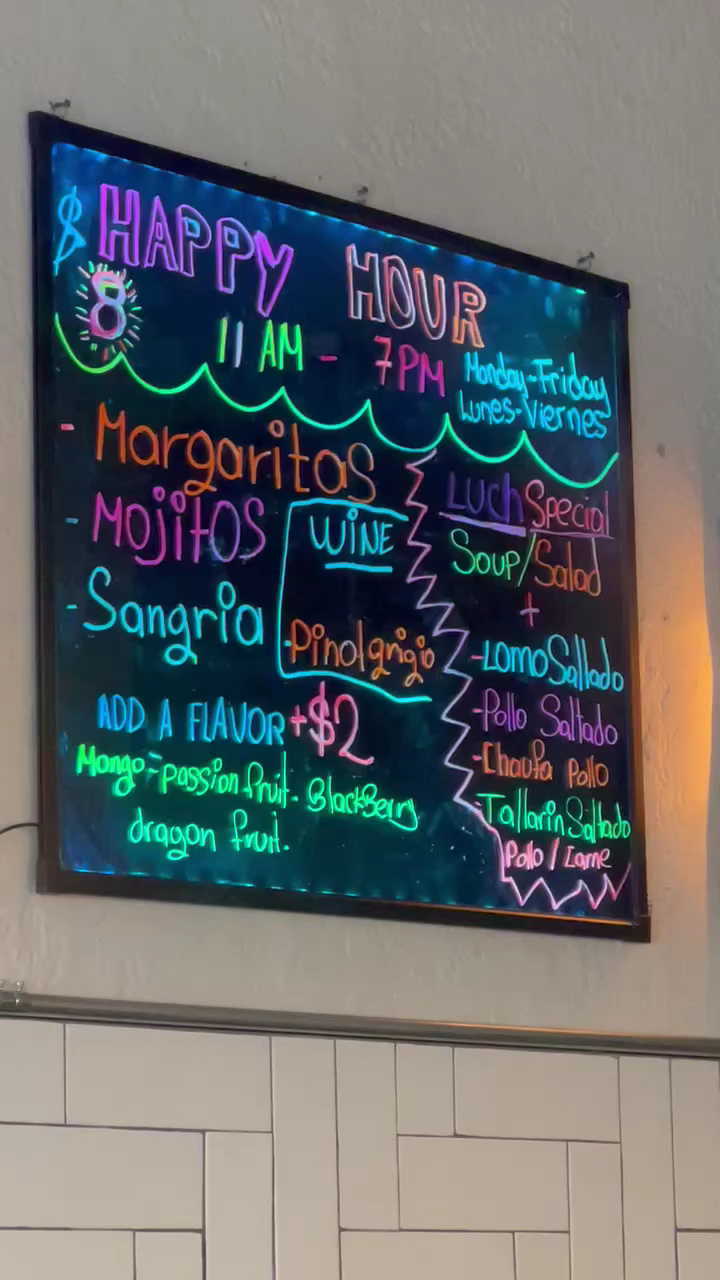 $ HAPPY HOUR
8
11 AM - 7PM
Monday-Friday
Lunes-Viernes
- Margaritas
- Mojitos
- Sangria
WINE
.Pinolgrigio
ADD A FLAVOR +$2
Mango-passion fruit. BlackBerry
dragon fruit.
LUCH Special
Soup/Salad
+
-LOMO Saltado
-Pollo Saltado
-Chaufa Pollo
-Tallarin Saltado
Pollo / Carne